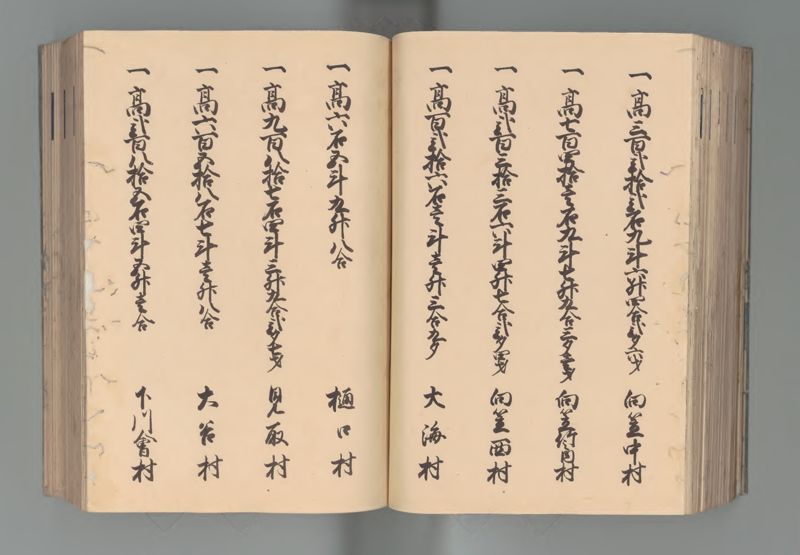 一 高三百弐拾弐石九斗六升四合弐夕六才 向笠中村
一 高七百四拾壱石九斗七升九合三夕壱才 向笠竹之内村
一 高弐百三拾三石六斗四升七合弐夕四才 向笠西村
一 高百弐拾六石壱斗壱升三合九夕 大海村
一 高六石五斗九升八合 樋口村
一 高九百八拾七石四斗三升九合弐夕七才 見取村
一 高六百五拾八石七斗壱升八合 大谷村
一 高弐百八拾五石四斗五升壱合 下川會村